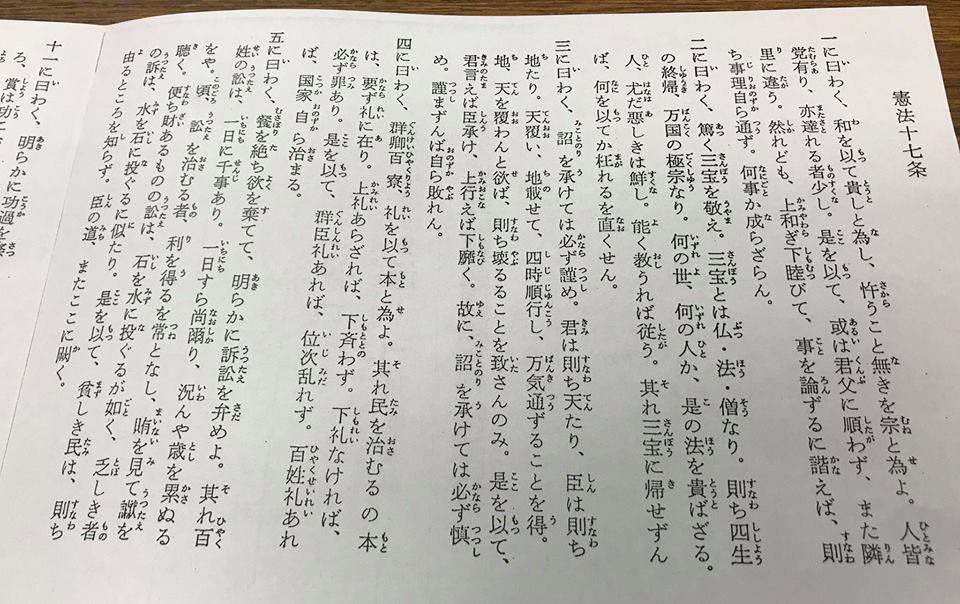 憲法十七条
一に曰わく、和を以て貴しと為し、忤うこと無きを宗と為よ。人皆
党有り、亦達れる者少し。是を以て、或は君父に順わず、また隣
里に違う。然れども、上和ぎ下睦びて、事を論ずるに諧えば、則
ち事理自ら通ず。何事か成らざらん。
二に曰わく、篤く三宝を敬え。三宝とは仏・法・僧なり。則ち四生
の終帰、万国の極宗なり。何の世、何の人か、是の法を貴ばざる。
人、尤だ悪しきは鮮し。能く教うれば従う。其れ三宝に帰せずん
ば、何を以てか枉れるを直くせん。
三に曰わく、詔を承けては必ず謹め。君は則ち天たり、臣は則ち
地たり。天覆い、地載せて、四時順行し、万気通ずることを得。
地、天を覆わんと欲ば、則ち壊るることを致さんのみ。是を以て、
君言えば臣承け、上行えば下靡く。故に、詔を承けては必ず慎
め。謹まずんば自ら敗れん。
四に曰わく、群卿百寮、礼を以て本と為よ。其れ民を治むるの本
は、要ず礼に在り。上礼あらざれば、下斉わず。下礼なければ、
必ず罪あり。是を以て、群臣礼あれば、位次乱れず。百姓礼あれ
ば、国家自ら治まる。
五に曰わく、餐を絶ち欲を棄てて、明らかに訴訟を弁めよ。其れ百
姓の訟は、一日に千事あり。一日すら尚爾り、況んや歳を累ぬる
をや。頃、訟を治むる者、利を得るを常となし、賄を見て讞を
聴く。便ち財あるものの訟は、石を水に投ぐるが如く、乏しき者
の訴は、水を石に投ぐるに似たり。是を以て、貧しき民は、則ち
由るところを知らず。臣の道、またここに闕く。
十一に曰わく、明らかに功過を
ろ、賞は功に